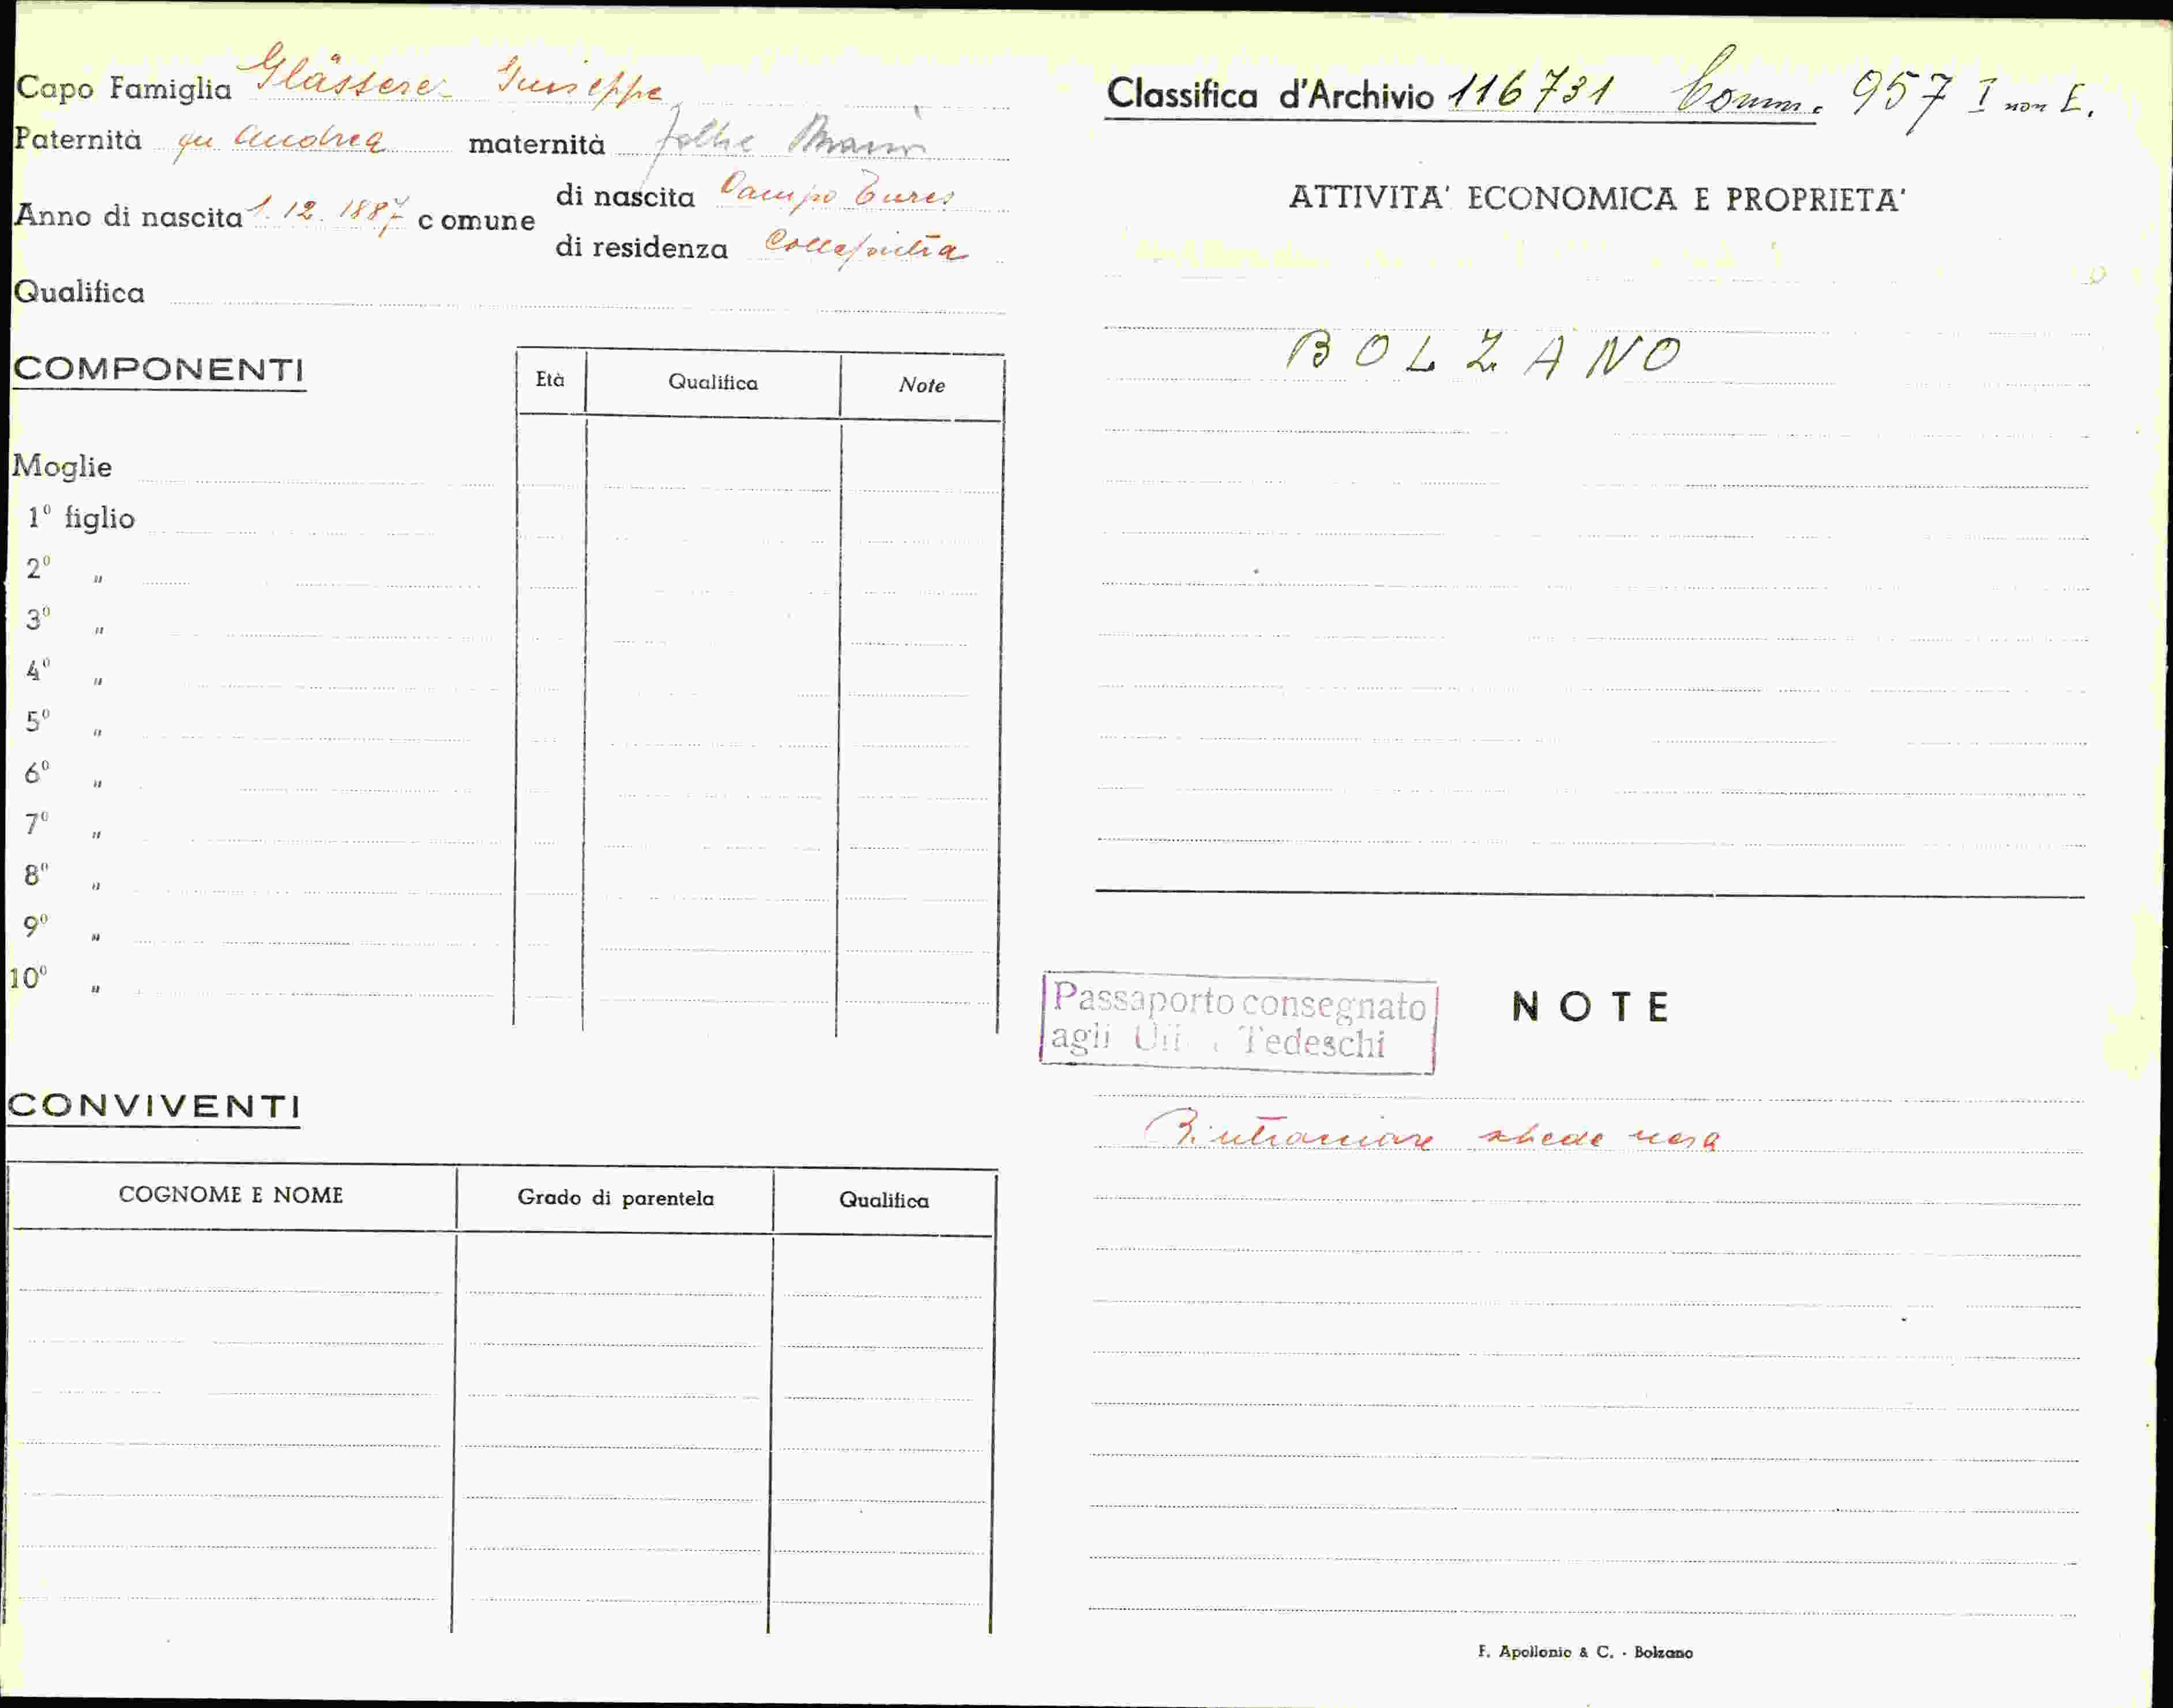 Capo Famiglia Glässere Giuseppe
Paternità fu Andrea maternità
Anno di nascita 1.12.1887 comune di nascita Campo Tures
di residenza Collepietra
Qualifica
COMPONENTI
Età Qualifica Note
Moglie
1º figlio
2º "
3º "
4º "
5º "
6º "
7º "
8º "
9º "
10º "
CONVIVENTI
COGNOME E NOME Grado di parentela Qualifica
Classifica d'Archivio 116731 Comm. 957 I non E.
ATTIVITA' ECONOMICA E PROPRIETA'
BOLZANO
Passaporto consegnato
agli Tedeschi
NOTE
Rintracciare schede
F. Apollonio & C. - Bolzano